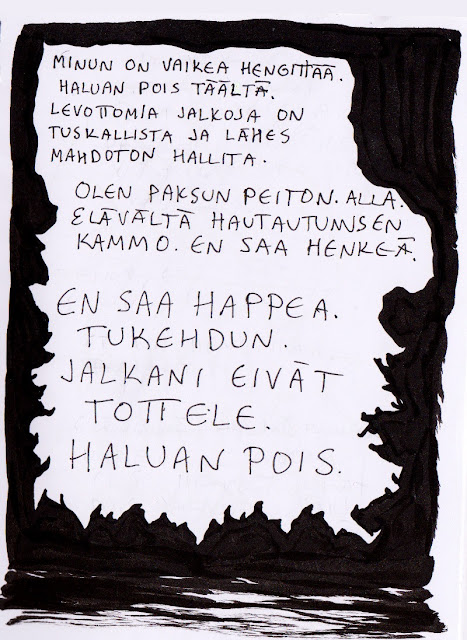 MINUN ON VAIKEA HENGITTÄÄ.
HALUAN POIS TÄÄLTÄ.
LEVOTTOMIA JALKOJA ON
TUSKALLISTA JA LÄHES
MAHDOTON HALLITA.
OLEN PAKSUN PEITON. ALLA.
ELÄVÄLTÄ HAUTAUTUMISEN
KAMMO. EN SAA HENKEÄ.
EN SAA HAPPEA.
TUKEHDUN.
JALKANI EIVÄT
TOTTELE.
HALUAN POIS.